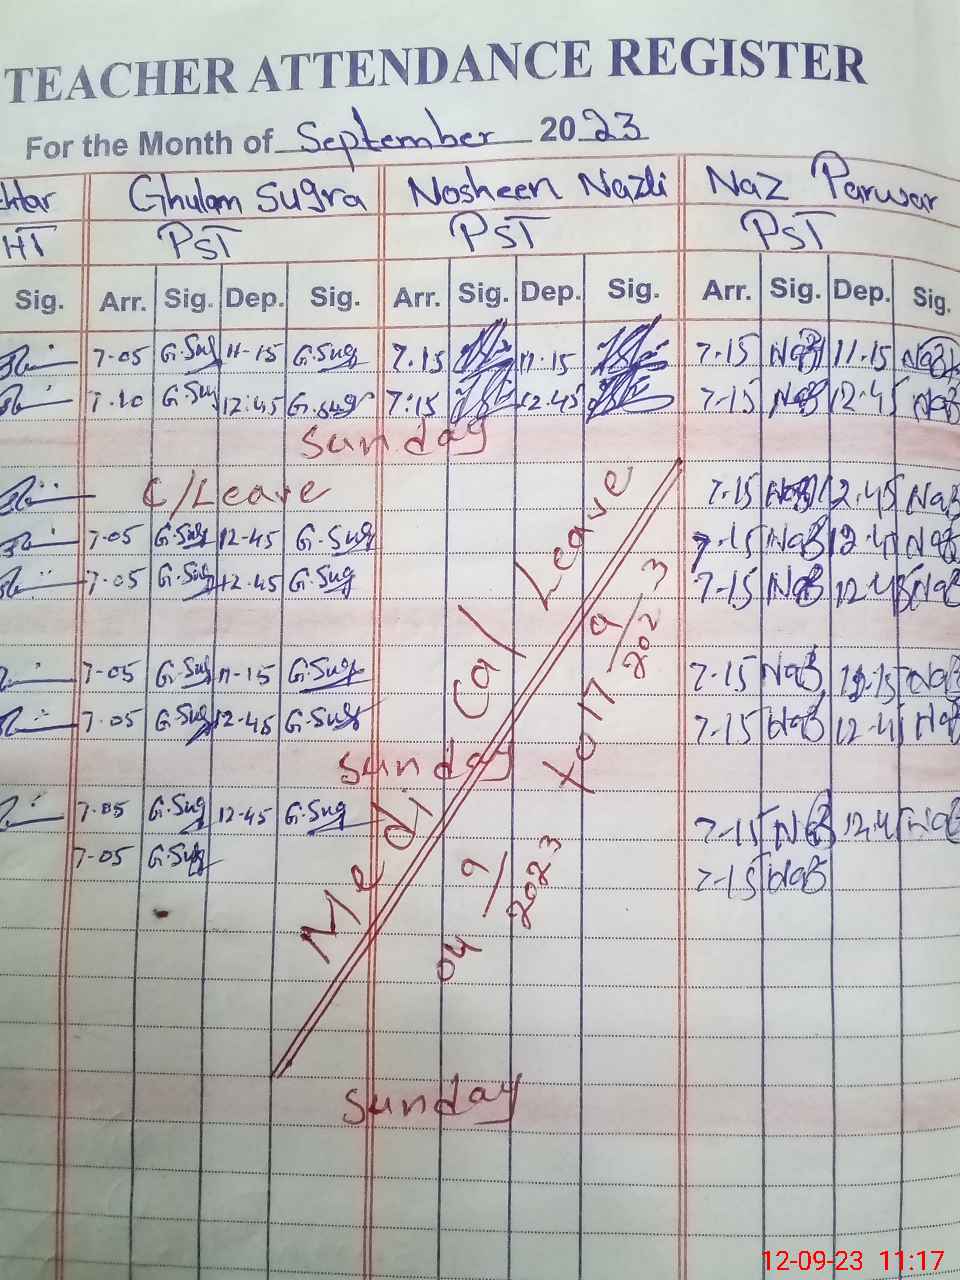 TEACHER ATTENDANCE REGISTER
For the Month of September 2023
Ghulam Sugra Nosheen Nazli Naz Parwar
HT PST PST PST
Sig. Arr. Sig. Dep. Sig. Arr. Sig. Dep. Sig. Arr. Sig. Dep. Sig.
7-05 G.Sug 11-15 G.Sug 7.15 11.15 7-15 NaB 11.15 NaB
7.10 G.Sug 12:45 G.Sug 7:15 12.45 7-15 NaB 12.45 NaB
Sunday
C/Leave 7.15 NaB 12.45 NaB
7-05 G.Sug 12-45 G.Sug 7-15 NaB NaB
7-05 G.Sug 12.45 G.Sug 7-15 NaB 12.45 NaB
7-05 G.Sug 11-15 G.Sug 7-15 NaB NaB
7-05 G.Sug 12-45 G.Sug 7-15 NaB NaB
Sunday
7-05 G.Sug 12-45 G.Sug 7-15 NaB NaB
7-05 G.Sug 7-15 NaB
Medical Leave
04 9/2023 to 17 9/2023
Sunday
12-09-23 11:17